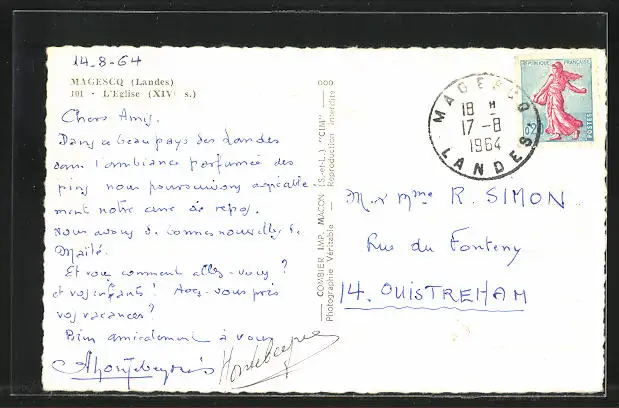 14-8-64
MAGESCQ (Landes)
101 - L'Eglise (XIVe s.)
Chers Amis.
Dans ce beau pays des Landes
dans l'ambiance parfumée des
pins nous poursuivons agréable
ment notre cure de repos.
Nous avons de bonnes nouvelles de
Maïté.
Et vous comment allez-vous ?
et vos enfants ! Avez-vous pris
vos vacances ?
Bien amicalement à vous
COMBIER IMP. MACON (S.-et-L.) "CIM"
Photographie Véritable - Reproduction interdite
REPUBLIQUE FRANÇAISE
0,20
POSTES
MAGESCQ
18 H
17-8
1964
LANDES
Mr et Mme R. SIMON
Rue du Fonteny
14. OUISTREHAM